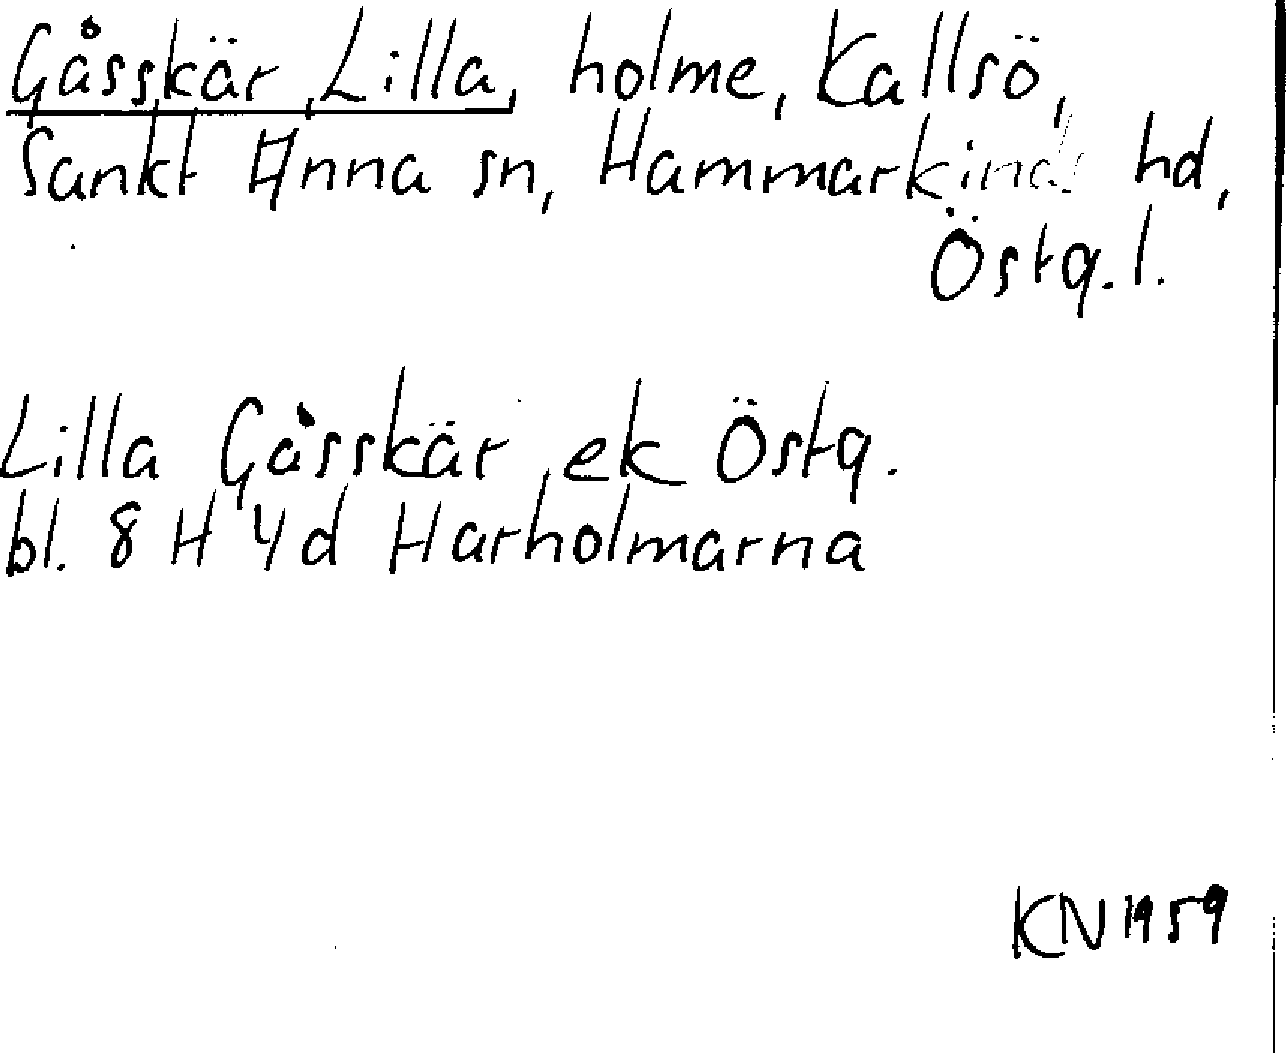 Gåsskär, Lilla, holme, Kallsö,
Sankt Anna sn, Hammarkinds hd,
Östg.l.
Lilla Gåsskär, ek Östg.
bl. 8 H 4d Harholmarna
KN 1959